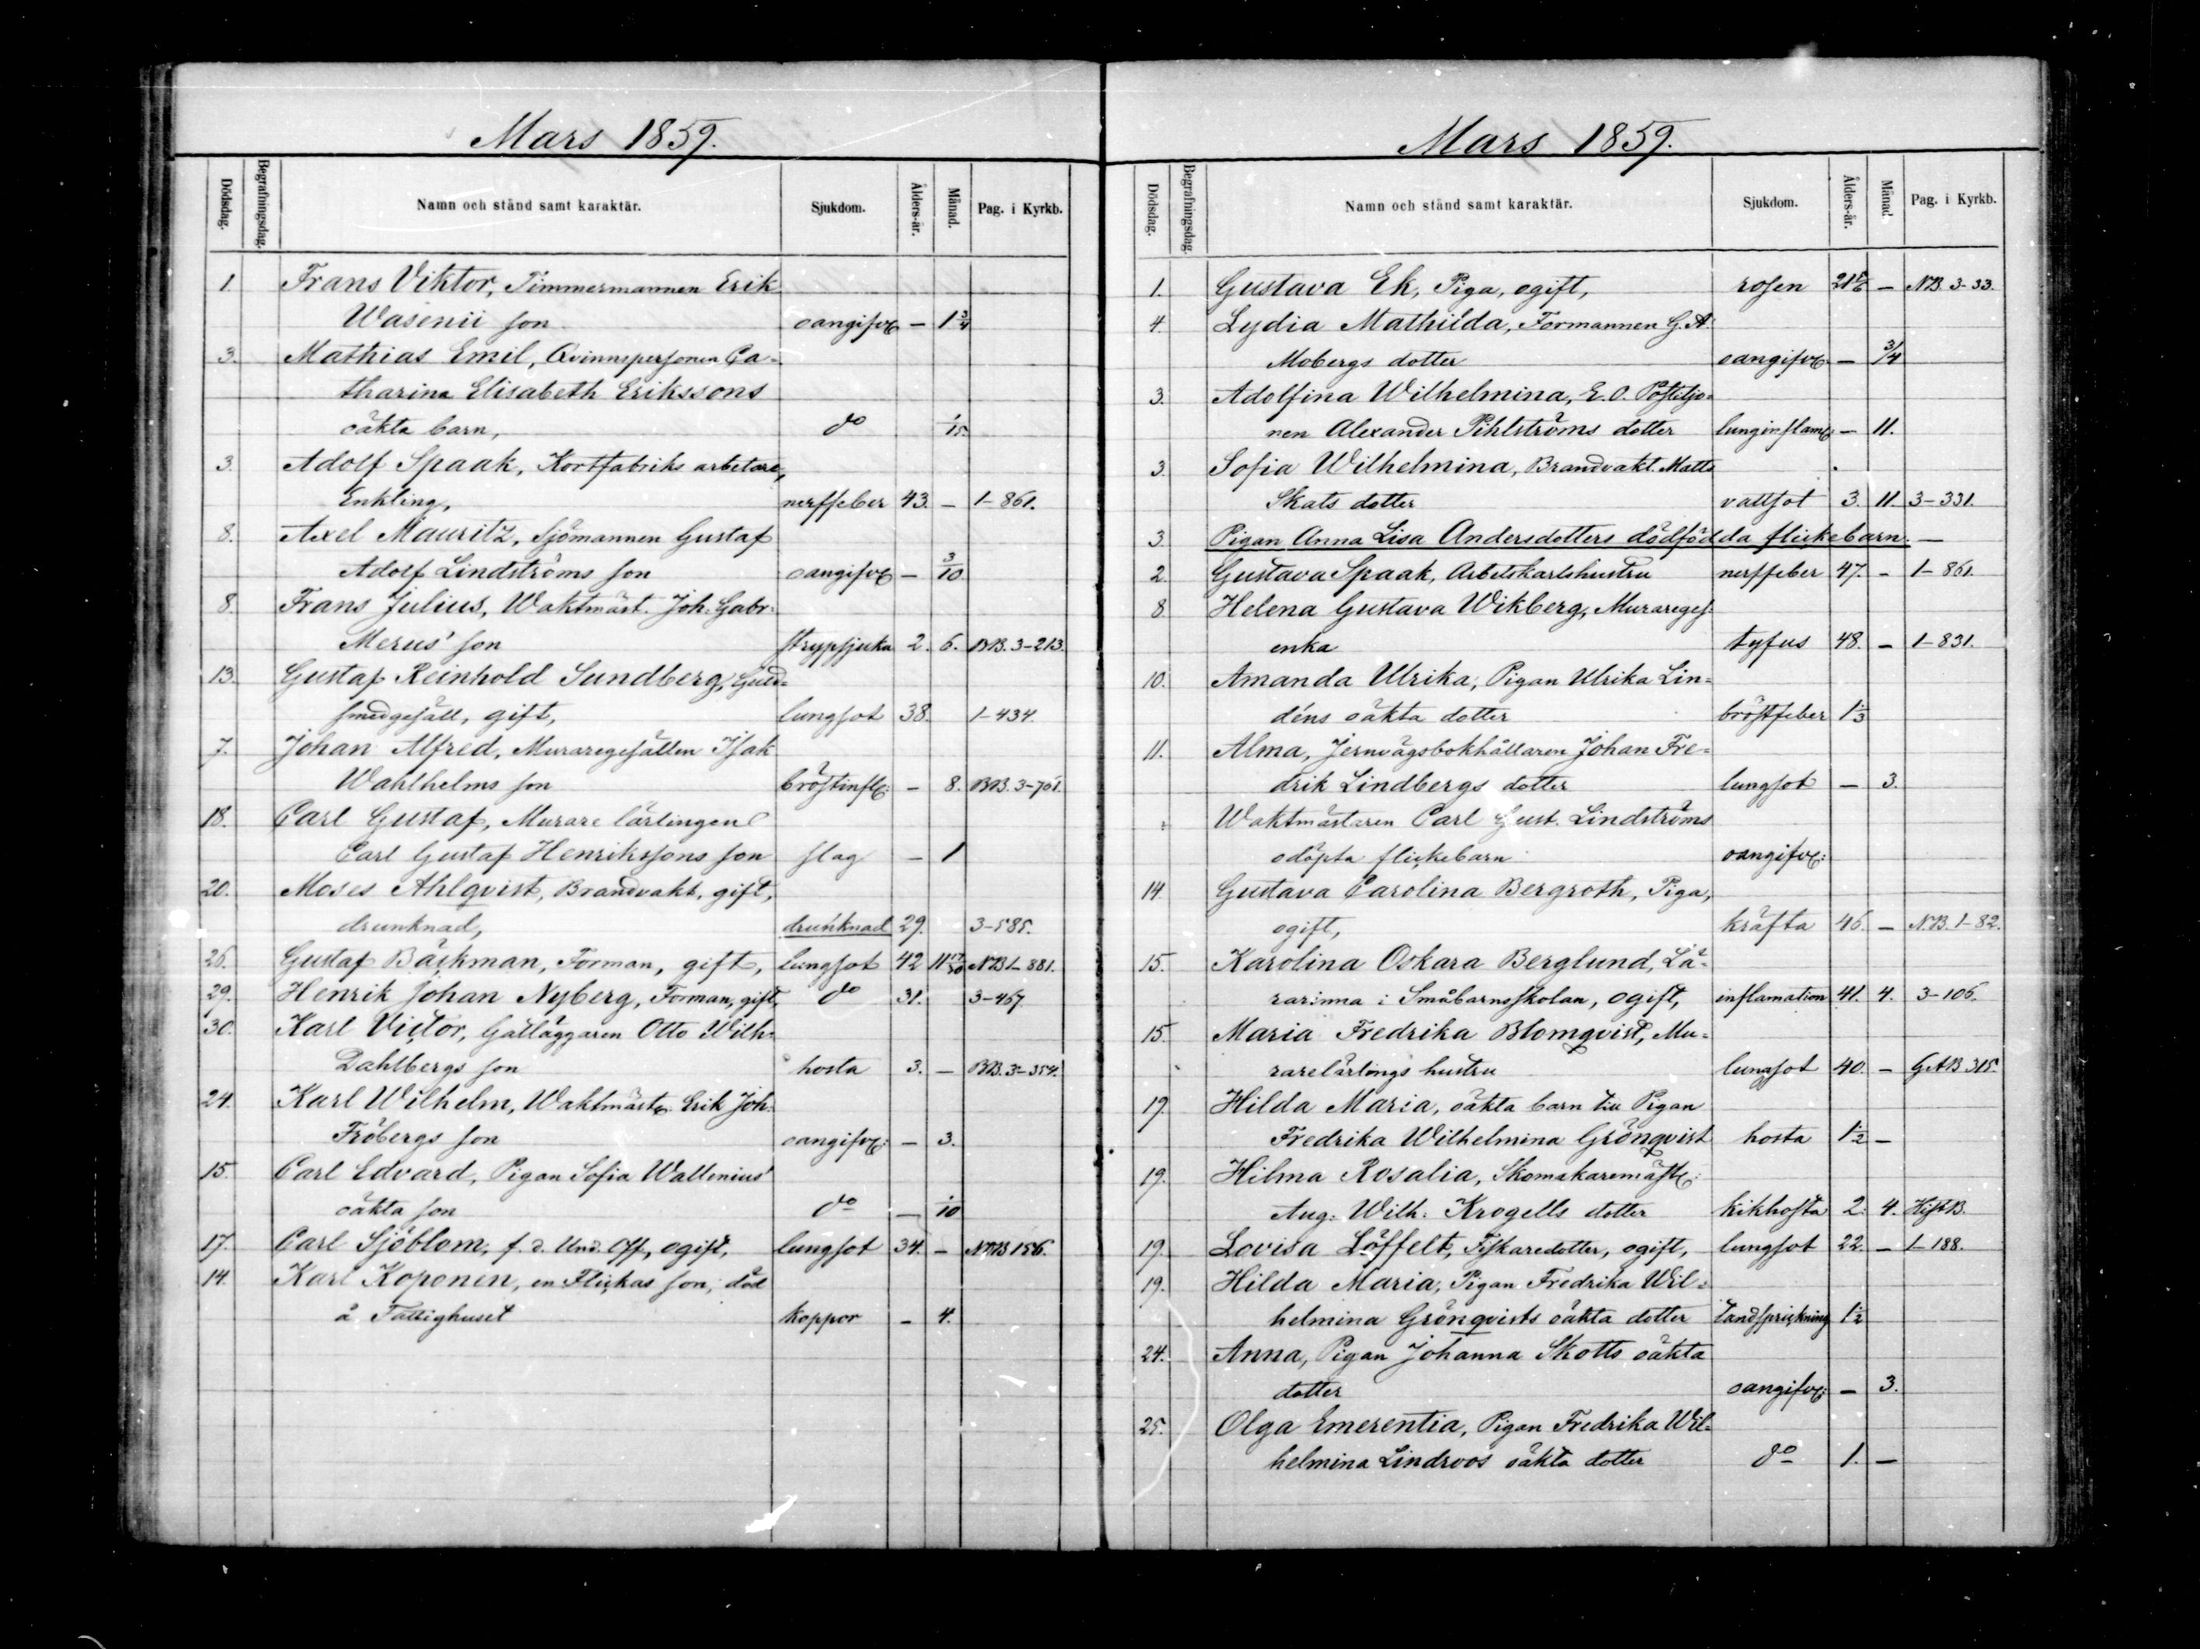 Mars 1859.
Dödsdag. Begrafningsdag. Namn och stånd samt karaktär. Sjukdom. Ålders-år. Månad. Pag. i Kyrkb.
1. Frans Viktor, Timmermannen Erik
Wasenii son oangifv: — 1 3/4
3. Mathias Emil, Qvinnspersonen Ca-
tharina Elisabeth Erikssons
oäkta barn, do 1/15
3. Adolf Spaak, Kortfabriks arbetare,
Enkling, nerffeber 43. — 1-861.
8. Axel Mauritz, Sjömannen Gustaf
Adolf Lindströms son oangifv: — 3/10
8. Frans Julius, Waktmäst. Joh: Gabr:
Merus' son strypsjuka 2. 6. BB. 3-213.
13. Gustaf Reinhold Sundberg, Guld-
smedgesäll, gift, lungsot 38. 1-434.
7. Johan Alfred, Muraregesällen Isak
Wahlhelms son bröstinfl: — 8. BB. 3-701.
18. Carl Gustaf, Murare lärlingen
Carl Gustaf Henrikssons son slag — 1
20. Moses Ahlqvist, Brandvakt, gift,
drunknad, drunknad 29. 3-585.
26. Gustaf Bäckman, Forman, gift, lungsot 42 11 17/30 NB 1-881.
29. Henrik Johan Nyberg, Forman, gift, do 31. 3-467
30. Karl Victor, Gatläggaren Otto Wilh:
Dahlbergs son hosta 3. — BB. 3-354.
24. Karl Wilhelm, Waktmäst: Erik Joh:
Fröbergs son oangifv: — 3.
15. Carl Edvard, Pigan Sofia Wallenius'
oäkta son do — 1/10
17. Carl Sjöblom, f. d. Und. Off, ogift, lungsot 34. — NNB 156.
14. Karl Koponen, en Flickas son, död
å Fattighuset koppor — 4.
Mars 1859.
Dödsdag. Begrafningsdag. Namn och stånd samt karaktär. Sjukdom. Ålders-år. Månad. Pag. i Kyrkb.
1. Gustava Ek, Piga, ogift, rosen 21 5/6 — NB. 3-33.
4. Lydia Mathilda, Formannen G. A:
Mobergs dotter oangifv: — 3/4
3. Adolfina Wilhelmina, E. O. Postiljo-
nen Alexander Pihlströms dotter lunginflam: — 11.
3. Sofia Wilhelmina, Brandvakt. Matts
Skats dotter vattsot 3. 11. 3-331.
3 Pigan Anna Lisa Andersdotters dödfödda flickebarn. —
2. Gustava Spaak, Arbetskarlshustru nerffeber 47. — 1-861
8 Helena Gustava Wikberg, Mureges:
enka tyfus 48. — 1-831.
10. Amanda Ulrika, Pigan Ulrika Lin-
déns oäkta dotter bröstfeber 1 1/3
11. Alma, Jernvägsbokhållaren Johan Fre-
drik Lindbergs dotter lungsot — 3.
Waktmästaren Carl Gust. Lindströms
odöpta flickebarn oangifv:
14 Gustava Carolina Bergroth, Piga,
ogift, kräfta 46. — NB. 1-82.
15. Karolina Oskara Berglund, Lä-
rarinna i Småbarnsskolan, ogift, inflamation 41. 4. 3-106.
15. Maria Fredrika Blomqvist, Mu-
rarelärlings hustru lungsot 40. — GAB 315.
19 Hilda Maria, oäkta barn till Pigan
Fredrika Wilhelmina Grönqvist hosta 1/2 —
19. Hilma Rosalia, Skomakaremäst:
Aug: Wilh: Krogells dotter kikhosta 2. 4. Hist B.
19. Lovisa Löffelt, Fiskaredotter, ogift, lungsot 22 — 1-188.
19. Hilda Maria, Pigan Fredrika Wil-
helmina Grönqvists oäkta dotter tandsprickning 1/2
24. Anna, Pigan Johanna Skotts oäkta
dotter oangifv: — 3.
25. Olga Emerentia, Pigan Fredrika Wil-
helmina Lindroos oäkta dotter do 1. —